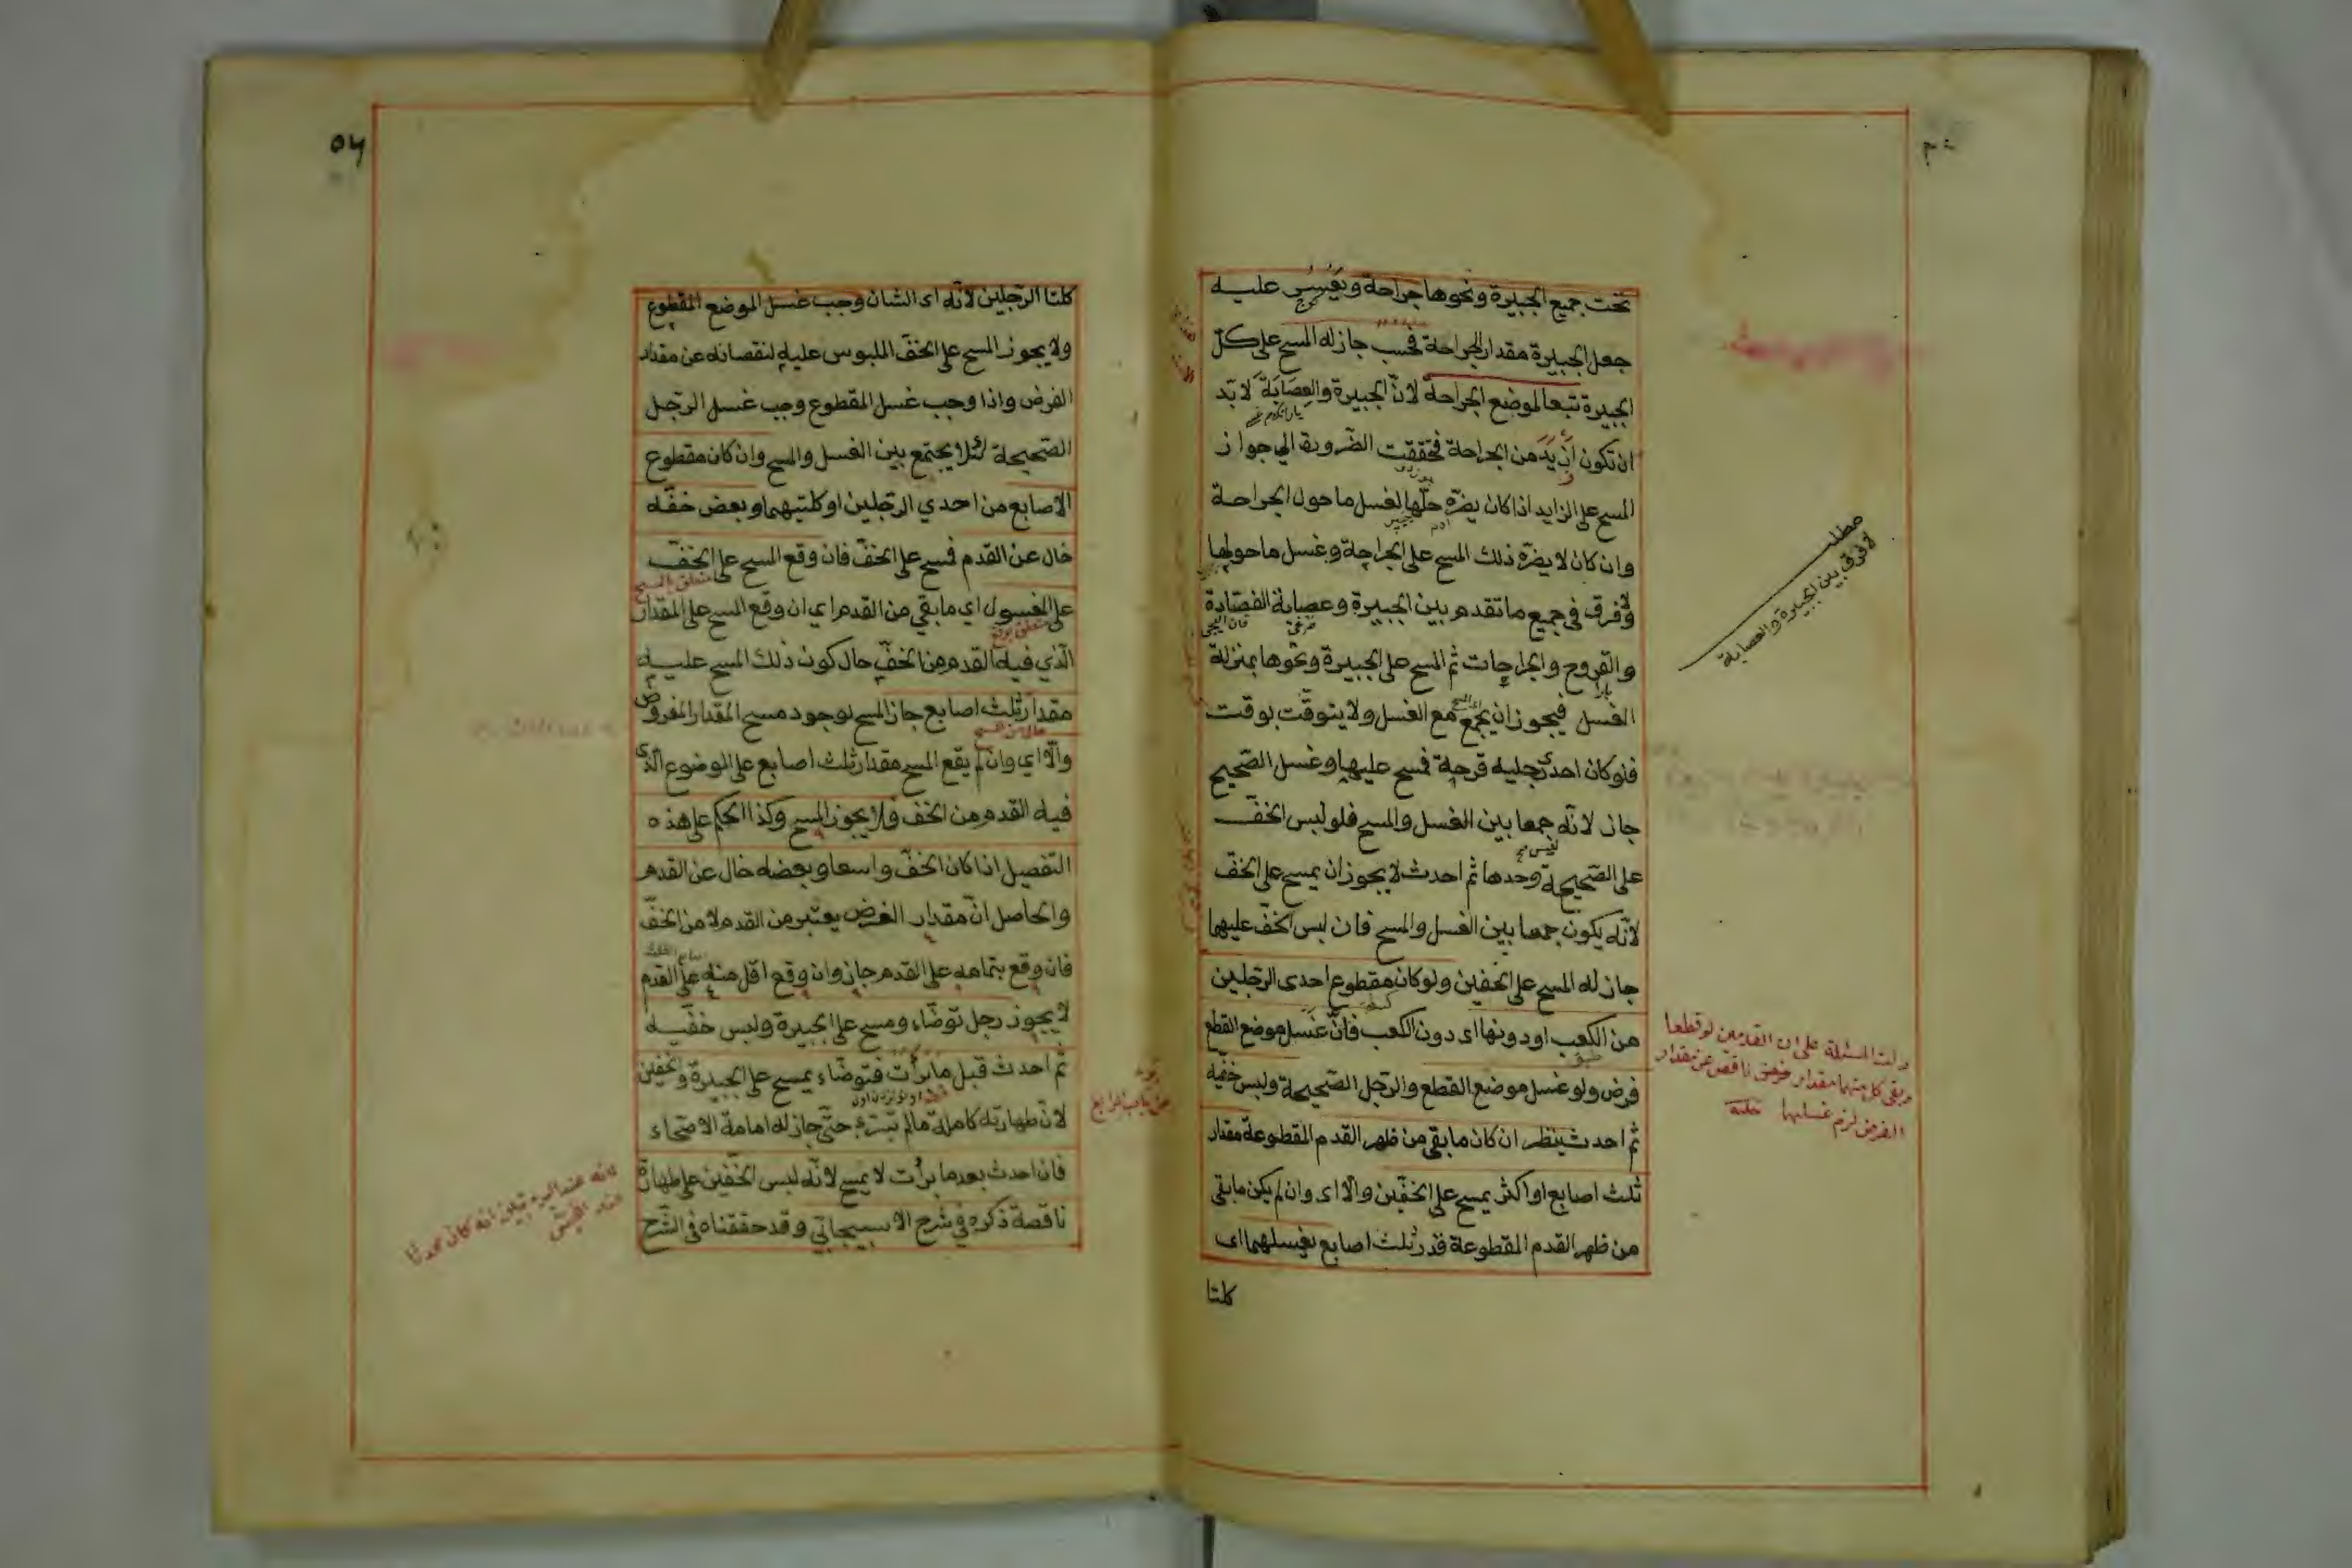 تحت جميع الجبيرة ونحوها جراحة ويعسر عليه
جعل الجبيرة مقدار الجراحة فحسب جاز له المسح على كل
الجبيرة تبعا لموضع الجراحة لانّ الجبيرة والعِصَابَةَ لا بدّ
ان تكون اَزْيَدَ من الجراحة فتحققت الضّرورة الي جواز
المسح على الزايد اذا كان يضرّه حلّها لغسل ما حول الجراحة
وان كان لا يضرّه ذلك المسح على الجراحة وغسل ما حولها
ولا فرق في جميع ما تقدم بين الجبيرة وعصابة الفصّادة
والقروح والجراحات ثم المسح على الجبيرة ونحوها بمنزلة
الغسل فيجوز ان يجمع مع الغسل ولا يتوقّت بوقت
فلو كان احدى رجليه قرحة فمسح عليها وغسل الصّحيح
جاز لانّه جمعا بين الغسل والمسح فلو لبس الخفّ
على الصّحيحة وحدها ثم احدث لا يجوز ان يمسح على الخفّ
لانّه يكون جمعا بين الغسل والمسح فان لبس الخفّ عليهما
جاز له المسح على الخفين ولو كان مقطوع احدى الرّجلين
من الكعب او دونها اى دون الكعب فانّ غسل موضع القطع
فرض ولو غسل موضع القطع والرّجل الصّحيحة ولبس خفّيه
ثم احدث ينظر ان كان ما بقى من ظهر القدم المقطوعة مقدار
ثلث اصابع او اكثر يمسح على الخفّين والّا اى وان لم يكن ما بقى
من ظهر القدم المقطوعة قدر ثلث اصابع يغسلهما اى
كلتا
مطلب
لا فرق بين الجبيرة والعصابة
دلت المسئلة على ان القدمين لو قطعا
وبقى كل منهما مقدار ناقص عن مقدار
الفرض لزم غسلها
٥٦
كلتا الرّجلين لانّه اى الشان وجب غسل الموضع المقطوع
ولا يجوز المسح على الخفّ الملبوس عليه لنقصانه عن مقدار
الفرض واذا وجب غسل المقطوع وجب غسل الرّجل
الصّحيحة لئلا يجتمع بين الغسل والمسح وان كان مقطوع
الاصابع من احدي الرّجلين او كلتيهما وبعض خفّه
خال عن القدم فمسح على الخفّ فان وقع المسح على الخفّ
على المغسول اي ما بقي من القدم اي ان وقع المسح على المقدار
الّذي فيه القدم من الخفّ حال كون ذلك المسح عليه
مقدار ثلث اصابع جاز المسح لوجود مسح المقدار المفروض
والّا اي وان لم يقع المسح مقدار ثلث اصابع على الموضوع الّذى
فيه القدم من الخف فلا يجوز المسح وكذا الحكم على هذه
التفصيل اذا كان الخفّ واسعا وبعضه خال عن القدم
والحاصل انّ مقدار الفرض يعتبر من القدم لا من الخفّ
فان وقع بتمامه على القدم جاز وان وقع اقل منه على القدم
لا يجوز رجل توضّاء ومسح على الجبيرة ولبس خفّيه
ثم احدث قبل ما برأت فتوضّاء يمسح على الجبيرة والخفين
لانّ طهارته كاملة ما لم تبترء حتّى جاز له امامة الاصحّاء
فان احدث بعد ما برأت لا يمسح لانّه لبس الخفّين على طهارة
ناقصة ذكره في شرح الاسبيجابي وقد حققناه في الشّرح
متعلق بالمسح
متعلق بوقع
حال من المسح